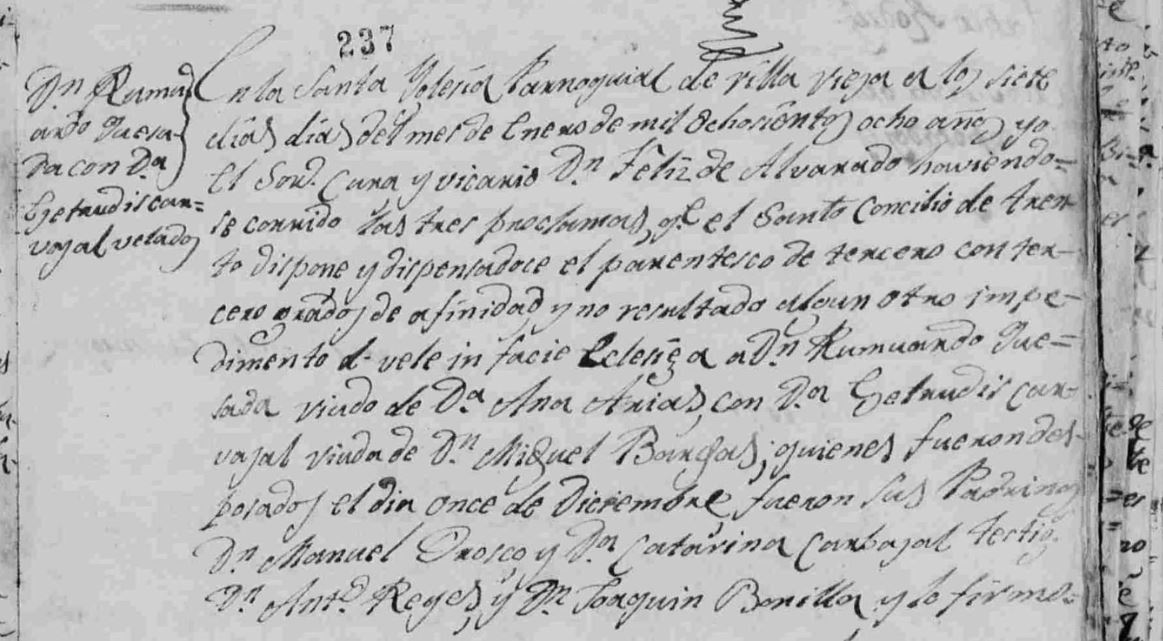 237
Dn Rumu
ardo Quesa-
da con Da
Getrudis car=
vajal velados
En la Santa Yglesia Parroquial de villa vieja a los siete
dias dias del mes de Enero de mil ochosientos ocho años yo
el Sor. Cura y vicario Dn Feliz de Alvarado haviendo=
se corrido las tres proclamas, qe el Santo Concilio de tren
to dispone y dispensadoce el parentesco de tercero con ter-
cero grados de afinidad y no resultado algun otro impe-
dimento d vele in facie Eclesiga a Dn Rumuardo Que=
sada viudo de Da Ana Arias, con Da Getrudis car-
vajal viuda de Dn Miguel Bargas; quienes fueron des-
posados el dia once de Diciembre, fueron sus Padrinos
Dn Manuel Orosco y Da Catarina Carbajal testigs
Dn Anto Reyes, y Dn Joaquin Bonilla y lo firme-